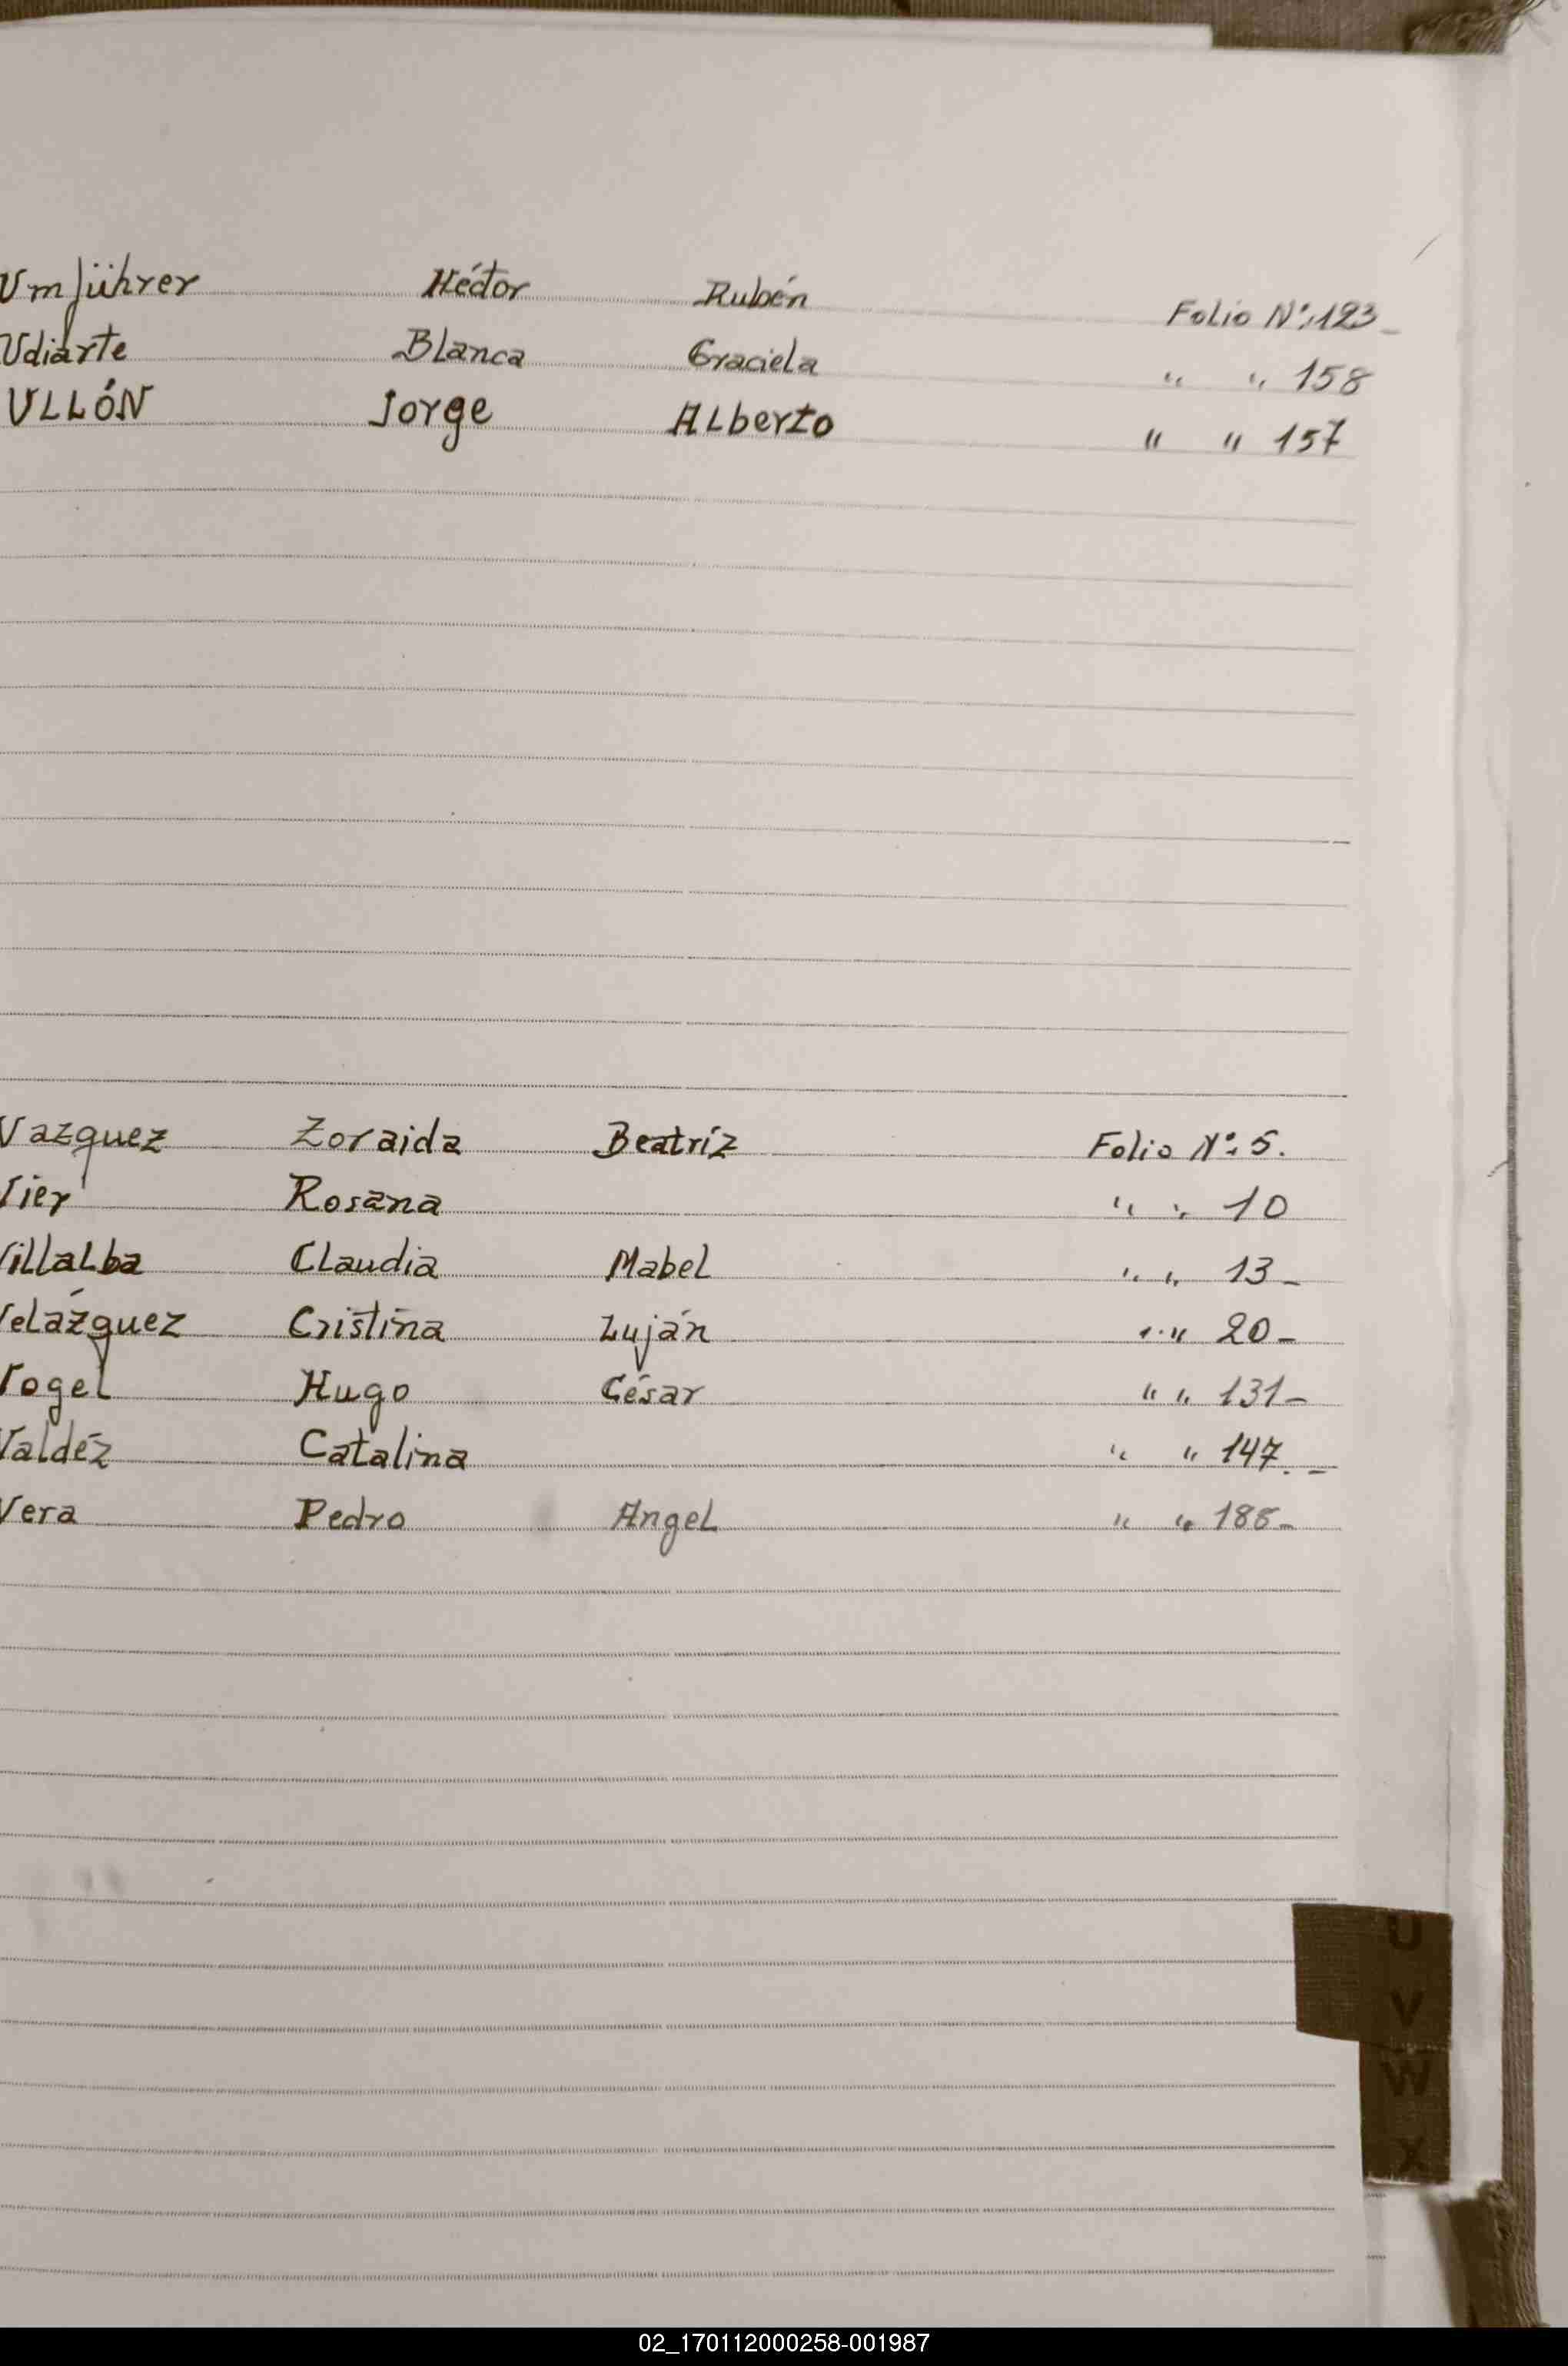 Umführer Héctor Rubén Folio N°: 123-
Udiarte Blanca Graciela " " 158
ULLÓN Jorge ALberto " " 157
Vazquez Zoraida Beatríz Folio N°: 5.
Vier Rosana " " 10
Villalba Claudia Mabel " " 13-
Velázquez Cristina Luján " " 20-
Vogel Hugo César " " 131-
Valdéz Catalina " " 147.-
Vera Pedro Angel " "
U
V
W
X
02_170112000258-001987